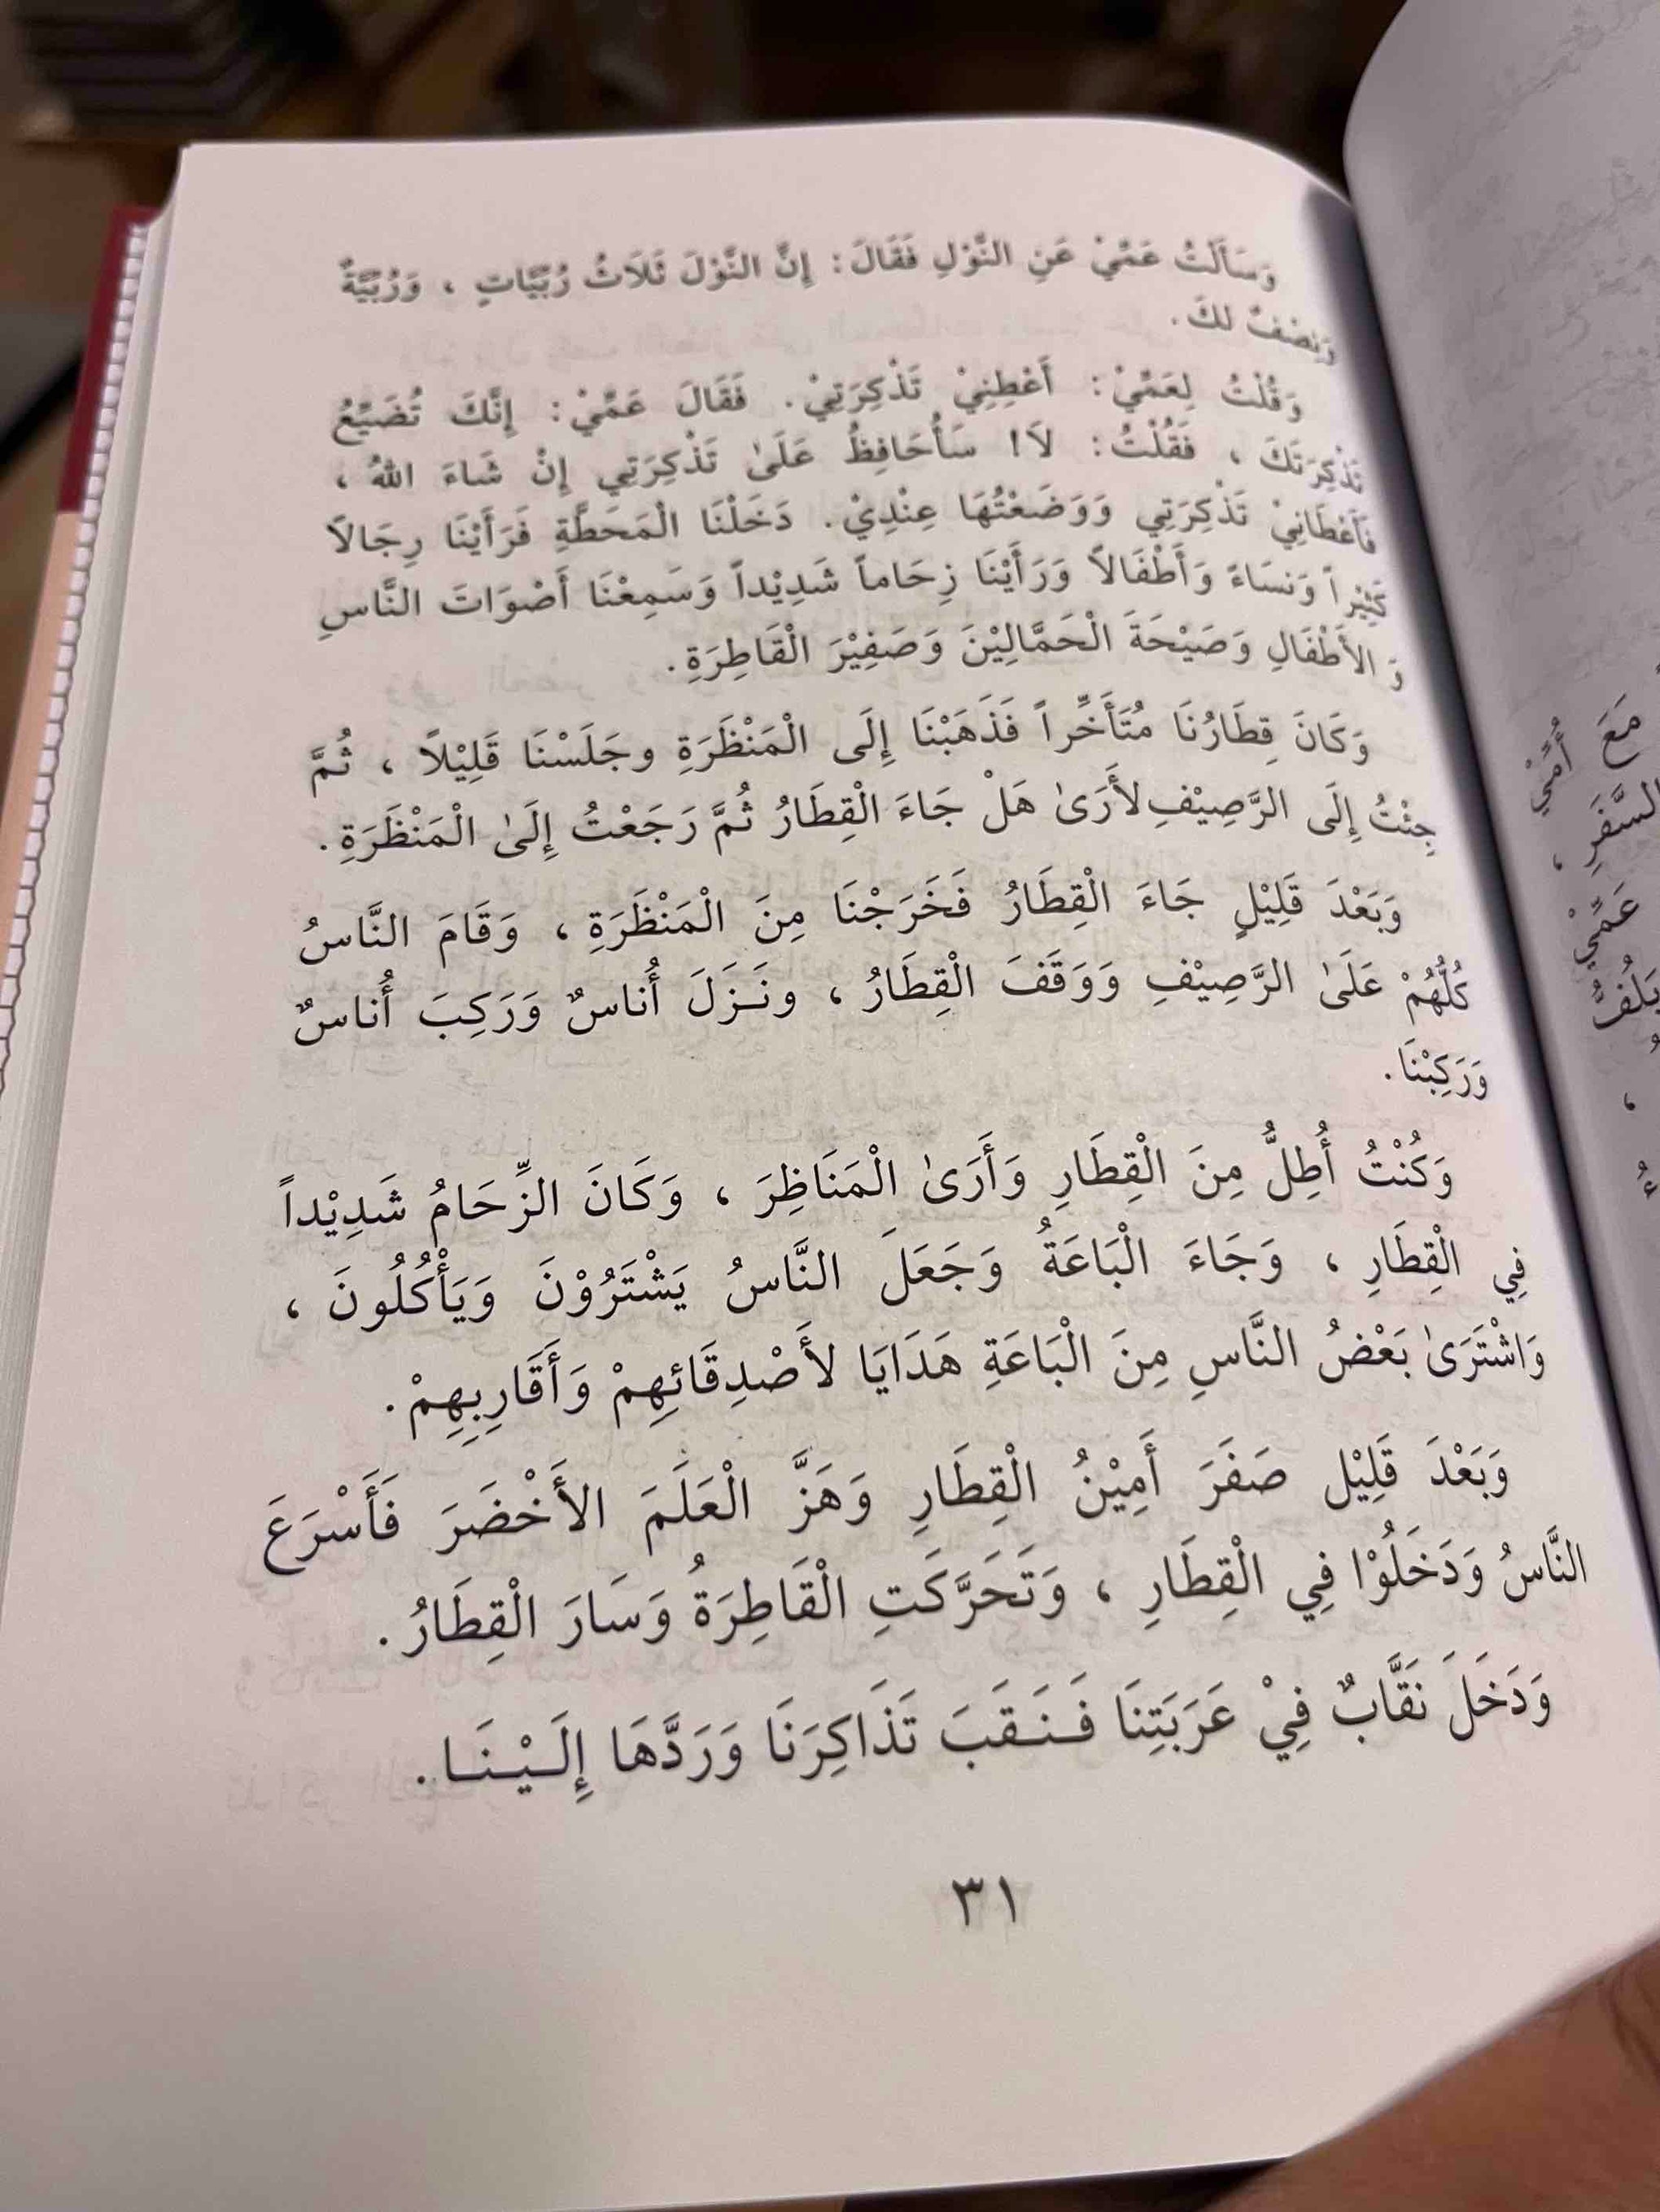 وَسَأَلْتُ عَمِّيْ عَنِ النَّوْلِ فَقَالَ: إِنَّ النَّوْلَ ثَلَاثُ رُبِّيَّاتٍ ، وَرُبِّيَّةٌ
وَنِصْفٌ لَكَ.
وَقُلْتُ لِعَمِّيْ: أَعْطِنِيْ تَذْكِرَتِيْ. فَقَالَ عَمِّيْ: إِنَّكَ تُضَيِّعُ
تَذْكِرَتَكَ ، فَقُلْتُ: لَا! سَأُحَافِظُ عَلَىٰ تَذْكِرَتِي إِنْ شَاءَ اللهُ ،
فَأَعْطَانِيْ تَذْكِرَتِي وَوَضَعْتُهَا عِنْدِيْ. دَخَلْنَا الْمَحَطَّةِ فَرَأَيْنَا رِجَالاً
كَثِيْراً وَنسَاءً وَأَطْفَالاً وَرَأَيْنَا زِحَاماً شَدِيْداً وَسَمِعْنَا أَصْوَاتَ النَّاسِ
وَالأَطْفَالِ وَصَيْحَةَ الْحَمَّالِيْنَ وَصَفِيْرَ الْقَاطِرَةِ.
وَكَانَ قِطَارُنَا مُتَأَخِّراً فَذَهَبْنَا إِلَى الْمَنْظَرَةِ وجَلَسْنَا قَلِيْلاً ، ثُمَّ
جِئْتُ إِلَى الرَّصِيْفِ لأَرَىٰ هَلْ جَاءَ الْقِطَارُ ثُمَّ رَجَعْتُ إِلَىٰ الْمَنْظَرَةِ.
وَبَعْدَ قَلِيْلٍ جَاءَ الْقِطَارُ فَخَرَجْنَا مِنَ الْمَنْظَرَةِ ، وَقَامَ النَّاسُ
كُلُّهُمْ عَلَىٰ الرَّصِيْفِ وَوَقَفَ الْقِطَارُ ، ونَـزَلَ أُناسٌ وَرَكِبَ أُناسٌ
وَرَكِبْنَا.
وَكُنْتُ أُطِلُّ مِنَ الْقِطَارِ وَأَرَىٰ الْمَنَاظِرَ ، وَكَانَ الزِّحَامُ شَدِيْداً
فِي الْقِطَارِ ، وَجَاءَ الْبَاعَةُ وَجَعَلَ النَّاسُ يَشْتَرُوْنَ وَيَأْكُلُونَ ،
وَاشْتَرَىٰ بَعْضُ النَّاسِ مِنَ الْبَاعَةِ هَدَايَا لأَصْدِقَائِهِمْ وَأَقَارِبِهِمْ.
وَبَعْدَ قَلِيْل صَفَرَ أَمِيْنُ الْقِطَارِ وَهَزَّ الْعَلَمَ الأَخْضَرَ فَأَسْرَعَ
النَّاسُ وَدَخَلُوْا فِي الْقِطَارِ ، وَتَحَرَّكَتِ الْقَاطِرَةُ وَسَارَ الْقِطَارُ.
وَدَخَلَ نَقَّابٌ فِيْ عَرَبَتِنَا فَـنَـقَبَ تَذَاكِرَنَا وَرَدَّهَا إِلَـيْـنَـا.
٣١
مَعَ أُمِّيْ
السَّفَرِ ،
عَمِّيْ